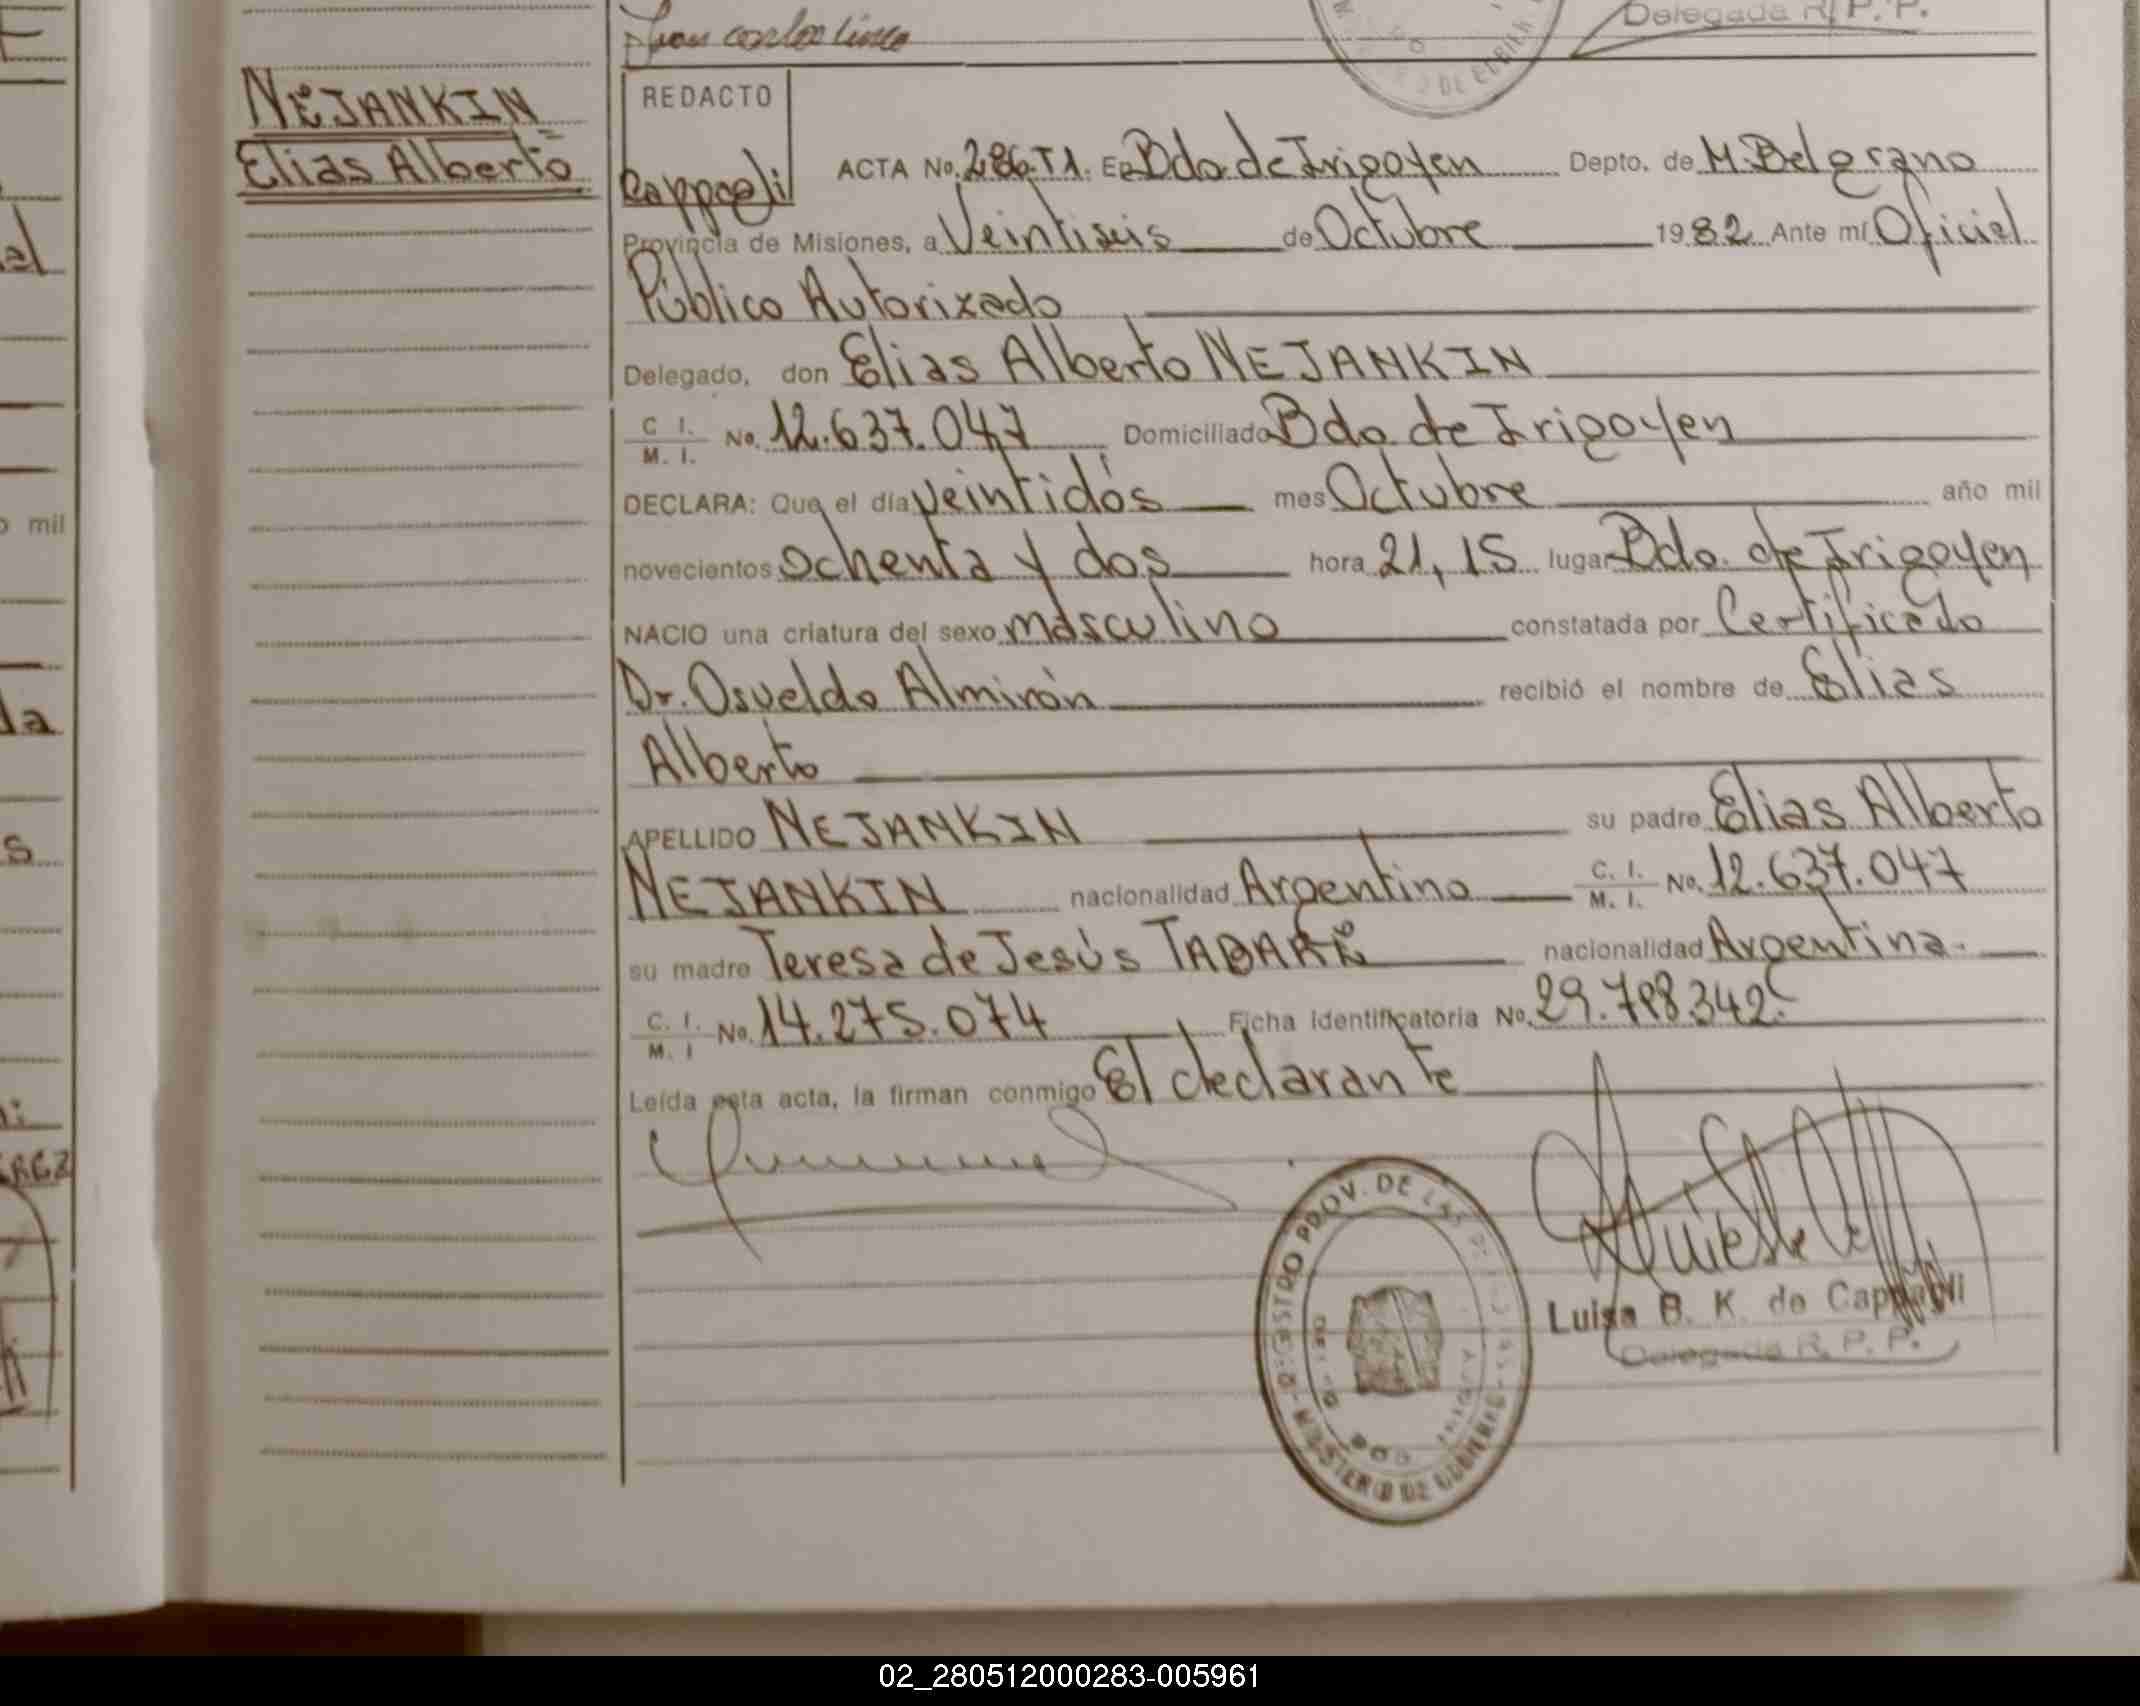 Juan Carlos
Delegada R. P. P.
NEJANKIN
Elias Alberto
REDACTO
ACTA No. 286.T1. En Bdo de Irigoyen Depto. de M. Belgrano
Provincia de Misiones, a Veintiseis de Octubre 1982 Ante mí Oficial
Público Autorizado
Delegado, don Elias Alberto NEJANKIN
C I. / M. I. No. 12.637.047 Domiciliado Bdo. de Irigoyen
DECLARA: Que el día veintidós mes Octubre año mil
novecientos ochenta y dos hora 21,15 lugar Bdo. de Irigoyen
NACIO una criatura del sexo masculino constatada por Certificado
Dr. Osvaldo Almirón recibió el nombre de Elias
Alberto
APELLIDO NEJANKIN su padre Elias Alberto
NEJANKIN nacionalidad Argentino C. I. / M. I. No. 12.637.047
su madre Teresa de Jesús TABARÉ nacionalidad Argentina.
C. I. / M. I No. 14.275.074 Ficha identificatoria No. 29.798.342
Leída esta acta, la firman conmigo El declarante
REGISTRO PROV. DE LAS
MINISTERIO DE GOBIERNO
Luisa B. K. de Cappelli
Delegada R. P. P.
o mil
02_280512000283-005961